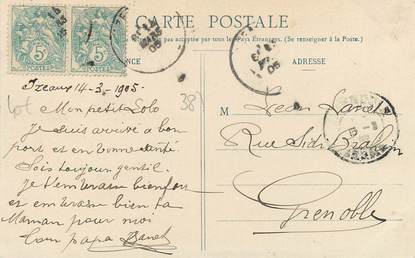 CARTE POSTALE
pas acceptée par tous les Pays Étrangers. (Se renseigner à la Poste.)
ADRESSE
14-3-1905.
Mon petit Lolo
Je suis arrivé a bon
port et en bonne santé
Sois toujours gentil.
Je t'embrasse bien fort
et embrasse bien ta
Maman pour moi
Ton papa
38
M Léon
Rue
Grenoble
5
5
POSTES
POSTES